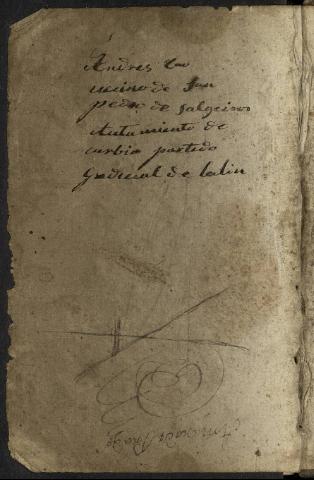 Andres
vecino de San
pedro de salgeiros
Autamiento de
carbia partido
gudicial de lalin